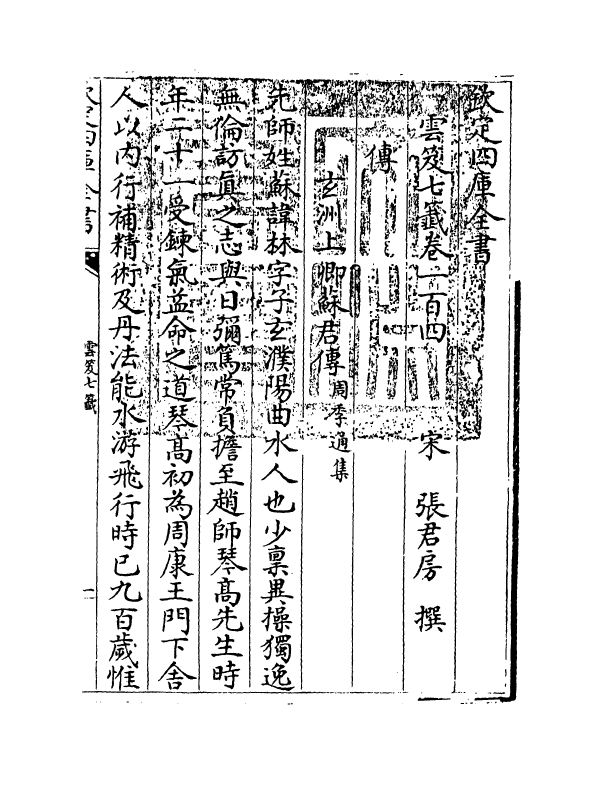 欽定四庫全書
雲笈七籤卷一百四　宋　張君房　撰
傳
玄洲上卿蘇君傳周季通集
先師姓蘇諱林字子玄濮陽曲水人也少稟異操獨逸
無倫訪真之志與日彌篤常負擔至趙師琴高先生時
年二十一受鍊氣益命之道琴高初為周康王門下舍
人以内行補精術及丹法能水游飛行時已九百歲惟
欽定四庫全書
雲笈七籤
一